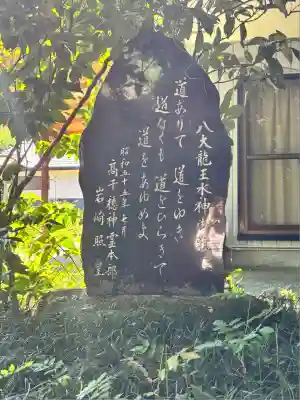 八大龍王水神
道ありて 道をゆき
道なくも 道をひらきて
道をあゆめよ
昭和五十五年七月
高千穂神霊本部
岩崎照皇